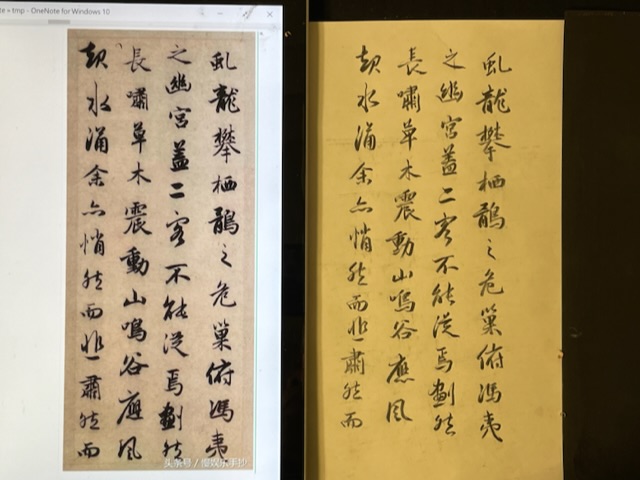 tmp - OneNote for Windows 10
虬龍攀栖鶻之危巢俯馮夷
之幽宮蓋二客不能從焉劃然
長嘯草木震動山鳴谷應風
起水涌余亦悄然而悲肅然而
头条号 /
虬龍攀栖鶻之危巢俯馮夷
之幽宮蓋二客不能從焉劃然
長嘯草木震動山鳴谷應風
起水涌余亦悄然而悲肅然而